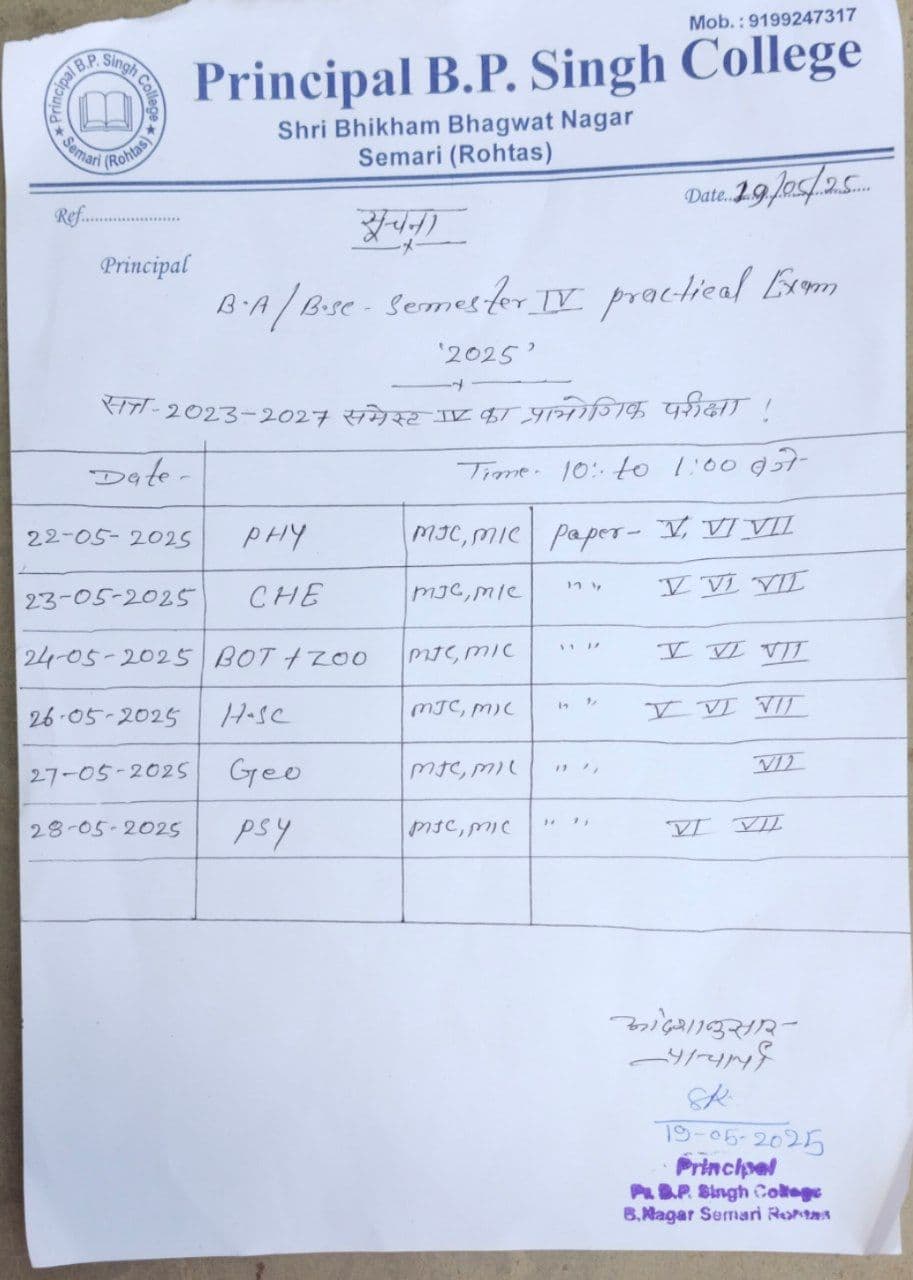 Mob. : 9199247317
Principal B.P. Singh College
★ Semari (Rohtas) ★
Principal B.P. Singh College
Shri Bhikham Bhagwat Nagar
Semari (Rohtas)
Date..19/05/25....
Ref......................
सूचना
Principal
B.A/B.sc - Semester IV practical Exam
'2025'
सत्र-2023-2027 समेस्ट IV का प्रायोगिक परीक्षा !
Date - Time - 10:. to 1:00 बजे-
22-05-2025 PHY MJC, MIC Paper- V, VI VII
23-05-2025 CHE MJC, MIC " " V VI VII
24-05-2025 BOT + ZOO MJC, MIC " " V VI VII
26-05-2025 H.sc MJC, MIC " " V VI VII
27-05-2025 Geo MJC, MIC " " VII
28-05-2025 PSY MJC, MIC " " VI VII
आदेशानुसार-
प्राचार्य
19-05-2025
Principal
Pr. B.P. Singh College
B.Nagar Semari Rohtas